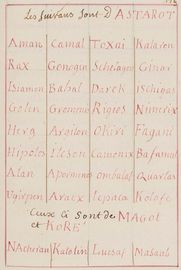 Les suivans sont D'ASTAROT
Aman Camal Toxai Kataron
Rax Gonogin Schelagon Ginar
Isiamon Bahal Darek Ischigas
Golen Gromenis Rigios Nimerix
Herg Argilon Okiri Fagani
Hipolos Ileson Camonix Bafamal
Alan Apormenos Ombalat Quartas
Ugirpen Araex Lepaca Kolofe
Ceux ci sont de MAGOT
et KORÉ
Nacheran Katolin Luesaf Masaub